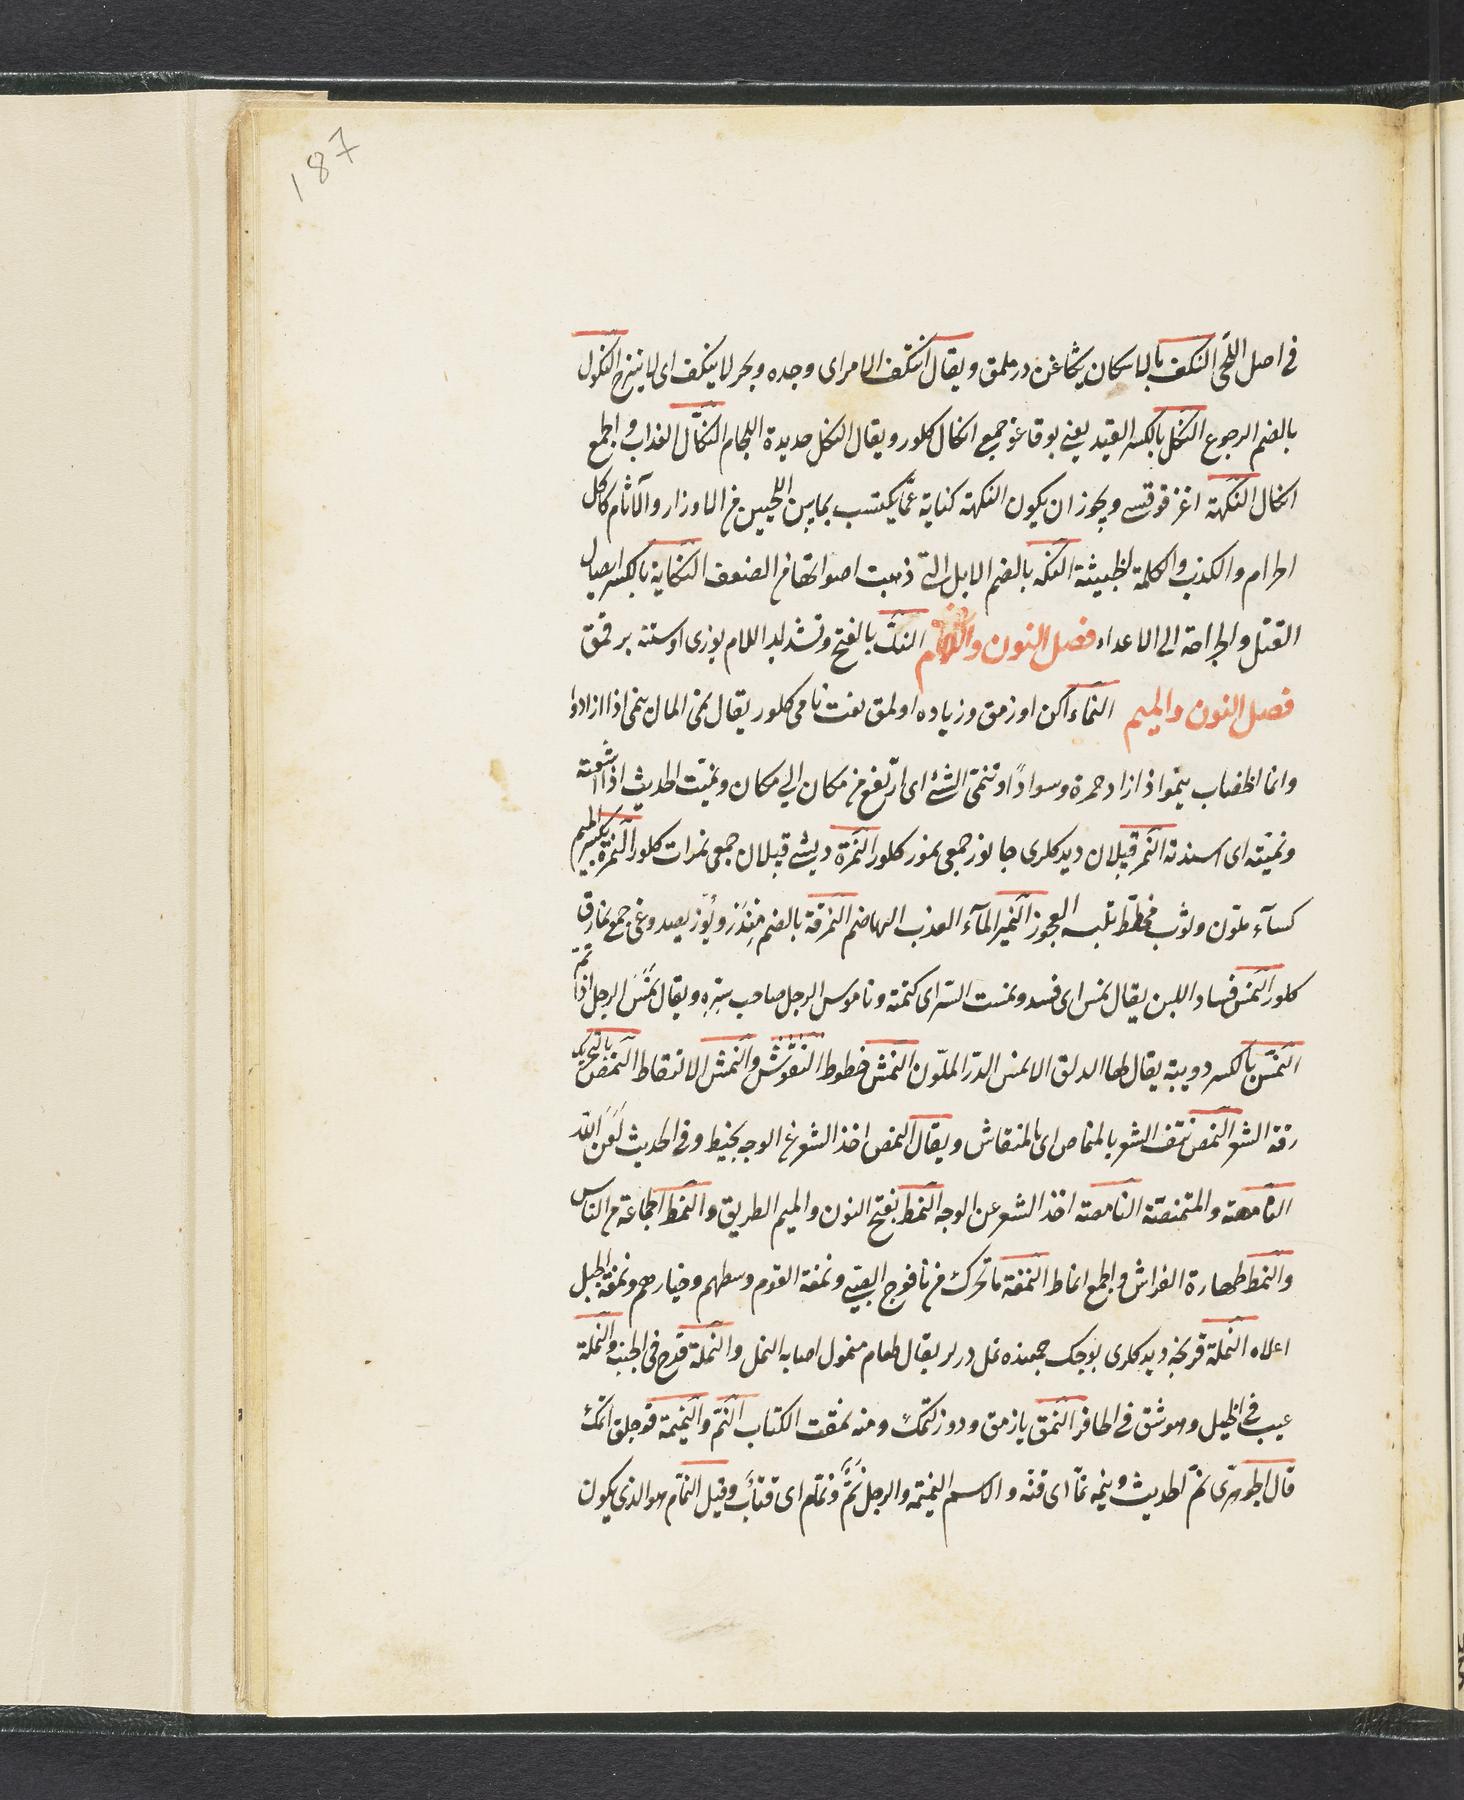 187
في اصل اللحى النكف بالاسكان يكاغن درملمق ويقال انتكف الامر اى وجده وبحر لا ينكف اى لا ينزح النكول
بالضم الرجوع النكل بالكسر القيد يعنى بوقاغو جمع انكال كلور ويقال النكل حديدة اللجام النكال العذاب والجمع
انكال النكهة اغز قوقسى ويجوز ان يكون النكهة كناية عما يكتسب بما بين اللحيين من الاوزار والآثام كاكل
الحرام والكذب والكلمة الخبيثة النكه بالضم الابل التى ذهبت اصواتها من الضعف النكاية بالكسر ايصال
القتل والجراحة الى الاعداء فصل النون واللام النل بالفتح وتشديد اللام يوزى اوستنه برقمق
فصل النون والميم النماء اكن اوزمق وزياده اولمق نعت نامى كلور يقال نمى المال ينمى اذا ازداد
وانما الخضاب ينموا اذ ازاد حمرة وسوادا او تنمى الشئ اى ارتفع من مكان الى مكان ونميت الحديث اذا اشعته
ونميته اى اسندته النمر قپلان ديدكلرى جانور جمعى نمور كلور النمرة ديشى قپلان جمعى نمرات كلور النمرة بكسر الميم
كسآء ملون وثوب مخطط تلبسه العجوز النمير المآء العذب الهاضم النمرقة بالضم مندز ويوز يصدوغى جمع نمارق
كلور النمس فساد اللبن يقال نمس اى فسد ونمست السر اى كتمته وناموس الرجل صاحب سره ويقال نمس الرجل اذا نم
النمس بالكسر دويبة يقال لها الدلق الانمس الدر الملون النمش خطوط النقوش والنمش الالتقاط النمص بالتحريك
رقة الشعر النمص نتف الشعر بالمنماص اى بالمنقاش ويقال النمص اخذ الشعر من الوجه بخيط وفى الحديث لعن الله
النامصة والمتنمصة النامصة اخذ الشعر عن الوجه النمط بفتح النون والميم الطريق والنمط الجماعة من الناس
والنمط طهارة الفراش والجمع انماط النمغة ما تحرك من نافوج الصبى ونمغة القوم وسطهم وخيارهم ونمغة الجبل
اعلاه النملة قرنجه ديدكلرى بوجك جمعنده نمل درلر يقال طعام منمول اصابه النمل والنملة قرح فى الجنب والنملة
عيب فى الخيل وهو شق فى الحافر النمق يازمق ودوزلتمك ومنه نمقت الكتاب النم والنميمة قوجلق اتمك
قال الجوهرى نم الحديث وينمه نما اى قته والاسم النميمة والرجل نم ونمام اى قتات وقيل النمام هو الذى يكون